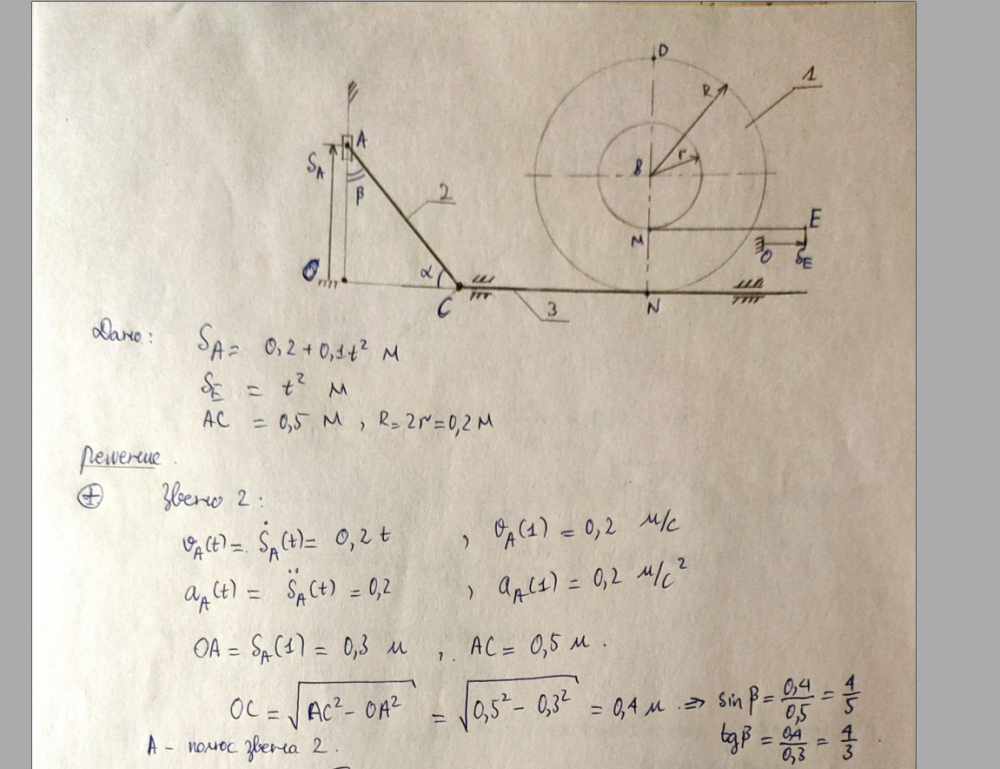 D
R
1
A
S_A
r
B
β
2
E
M
O
S_E
O
α
C
3
N
Дано: S_A = 0,2 + 0,1t² м
S_E = t² м
AC = 0,5 м, R = 2r = 0,2 м
Решение.
Звено 2:
υ_A(t) = Ṡ_A(t) = 0,2 t , υ_A(1) = 0,2 м/с
a_A(t) = S̈_A(t) = 0,2 , a_A(1) = 0,2 м/с²
OA = S_A(1) = 0,3 м , AC = 0,5 м.
OC = √(AC² - OA²) = √(0,5² - 0,3²) = 0,4 м. ⇒ sin β = 0,4/0,5 = 4/5
A - полюс звена 2. tg β = 0,4/0,3 = 4/3.